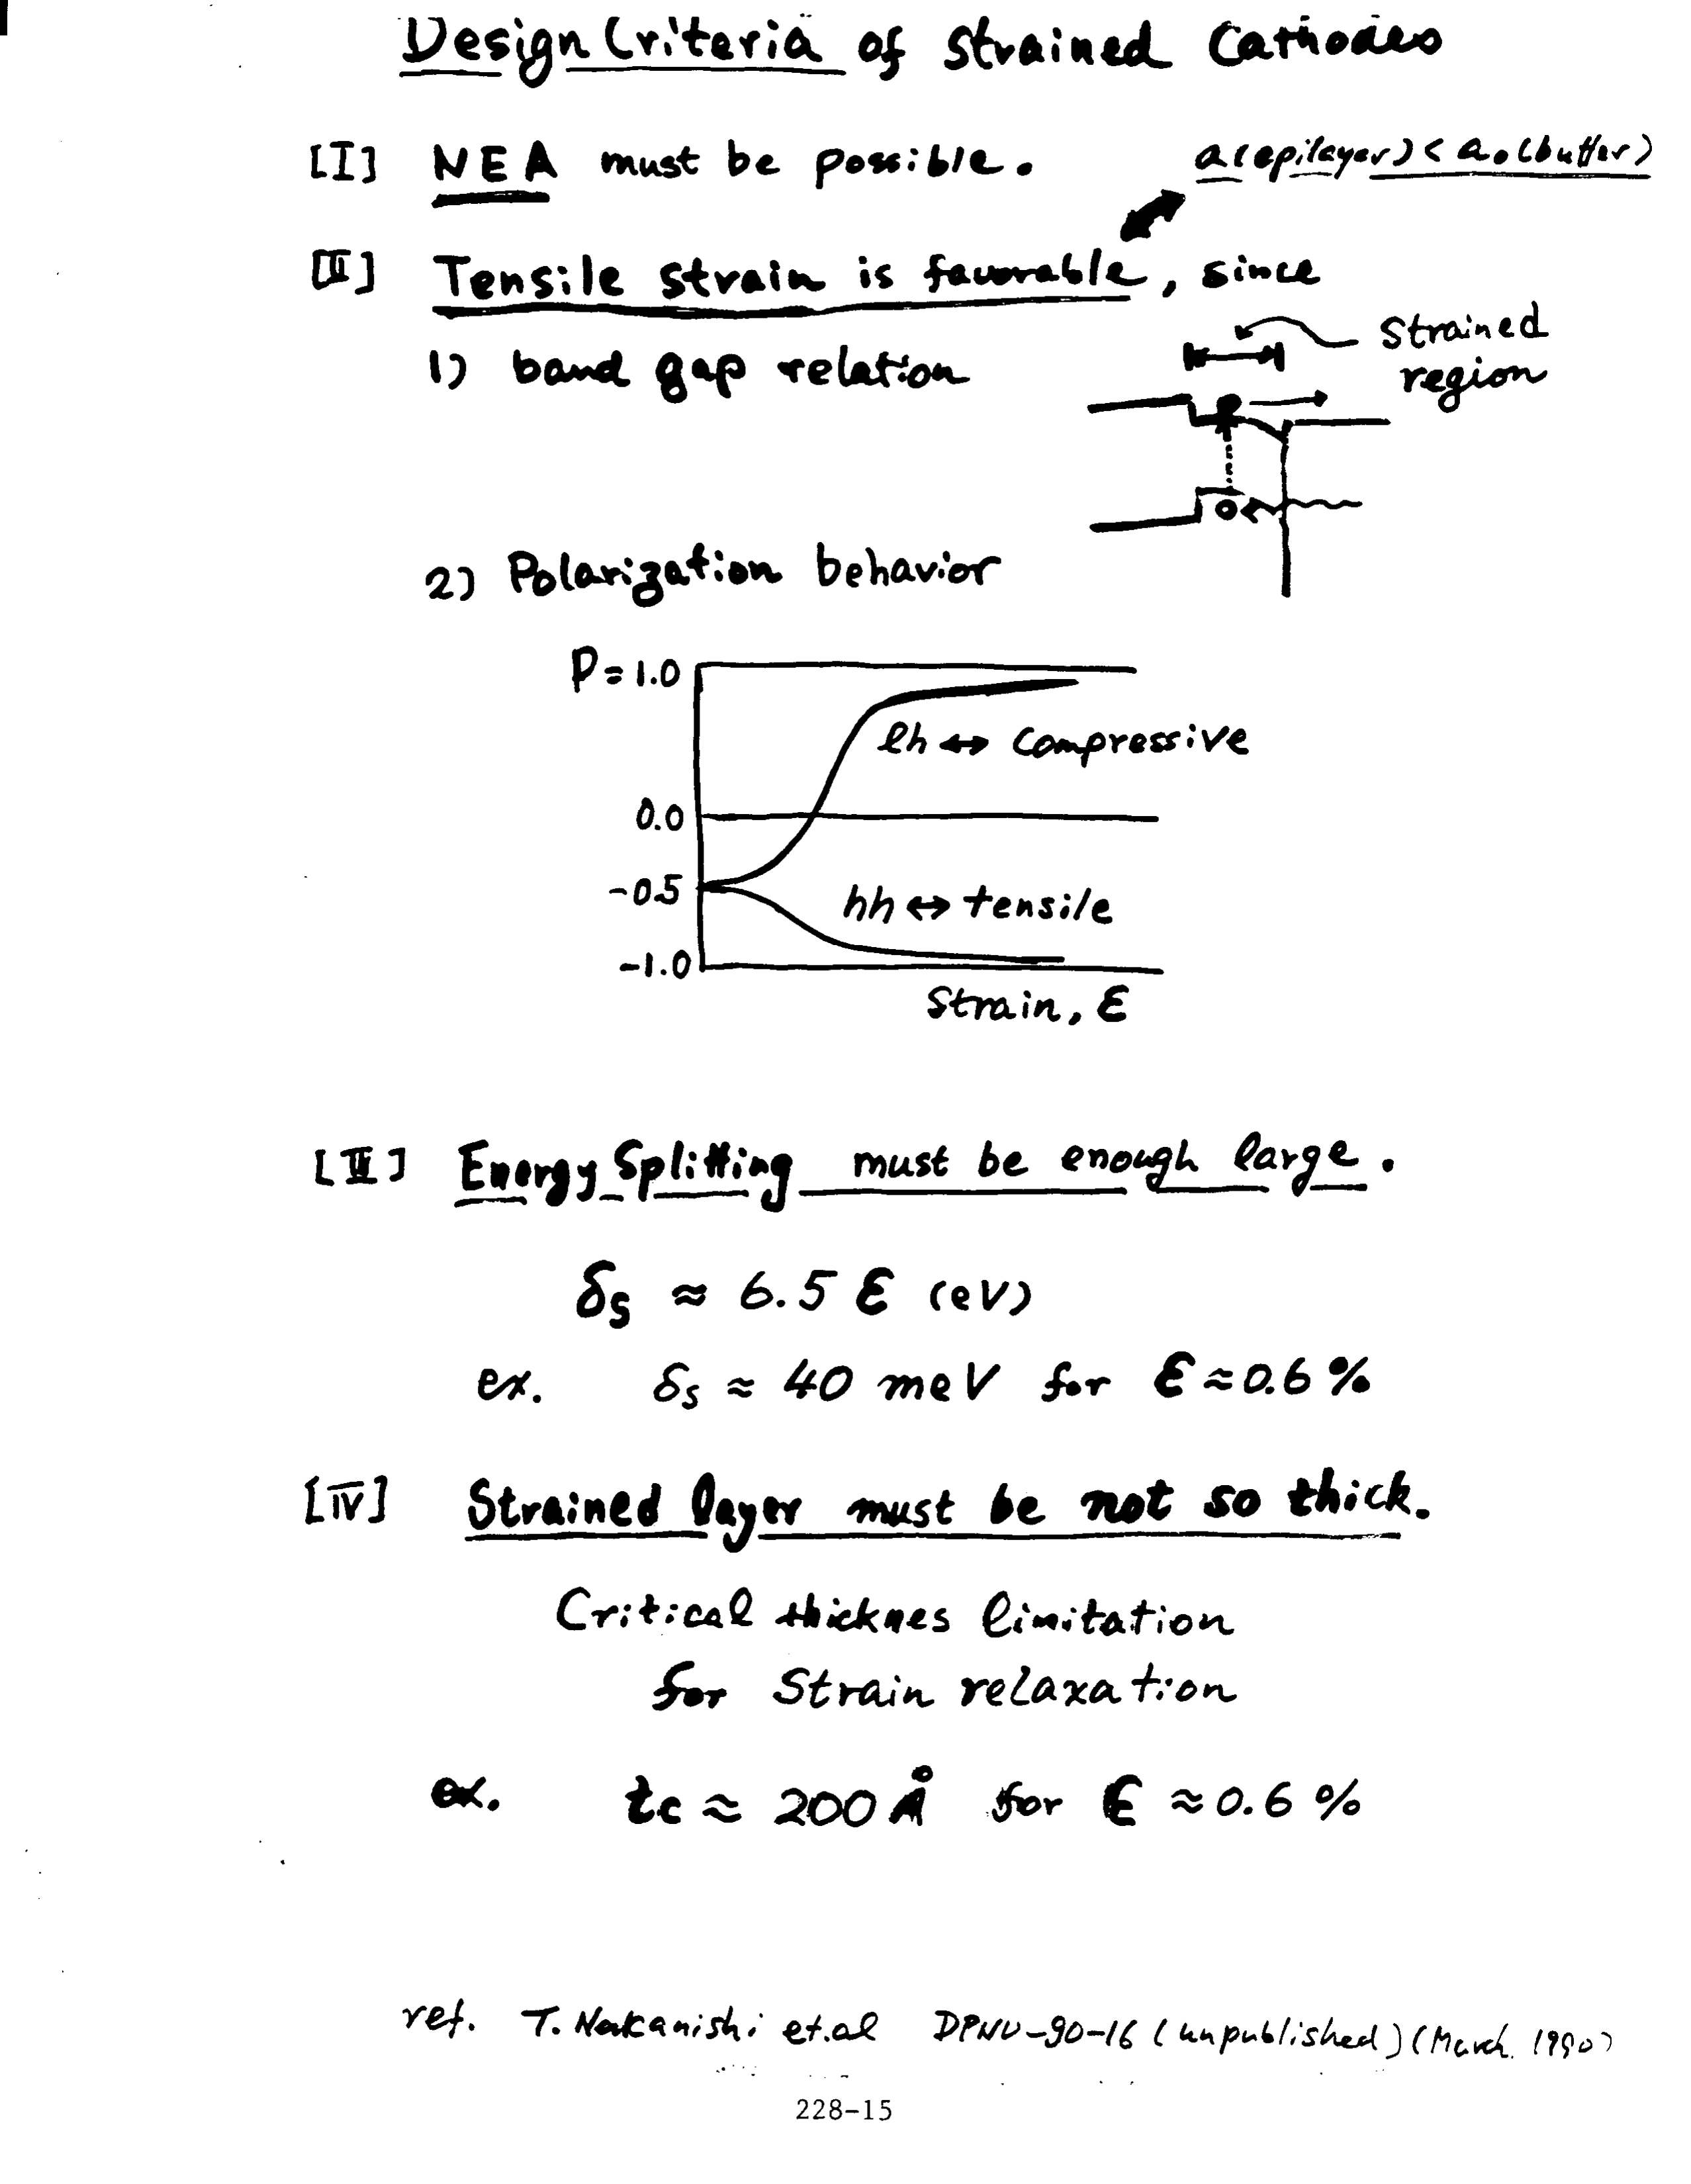 Design Criteria of Strained Cathodes
[I] NEA must be possible.
a(epilayer) < a₀(buffer)
[II] Tensile strain is favorable, since
1) band gap relation
Strained
region
2) Polarization behavior
P = 1.0
lh ↔ Compressive
0.0
-0.5
hh ↔ tensile
-1.0
Strain, ε
[III] Energy Splitting must be enough large.
δs ≈ 6.5 ε (eV)
ex. δs ≈ 40 meV for ε ≈ 0.6 %
[IV] Strained layer must be not so thick.
Critical thicknes limitation
for Strain relaxation
ex. tc ≈ 200 Å for ε ≈ 0.6 %
ref. T. Nakanishi et.al DPNU-90-16 (unpublished) (March. 1990)
228-15